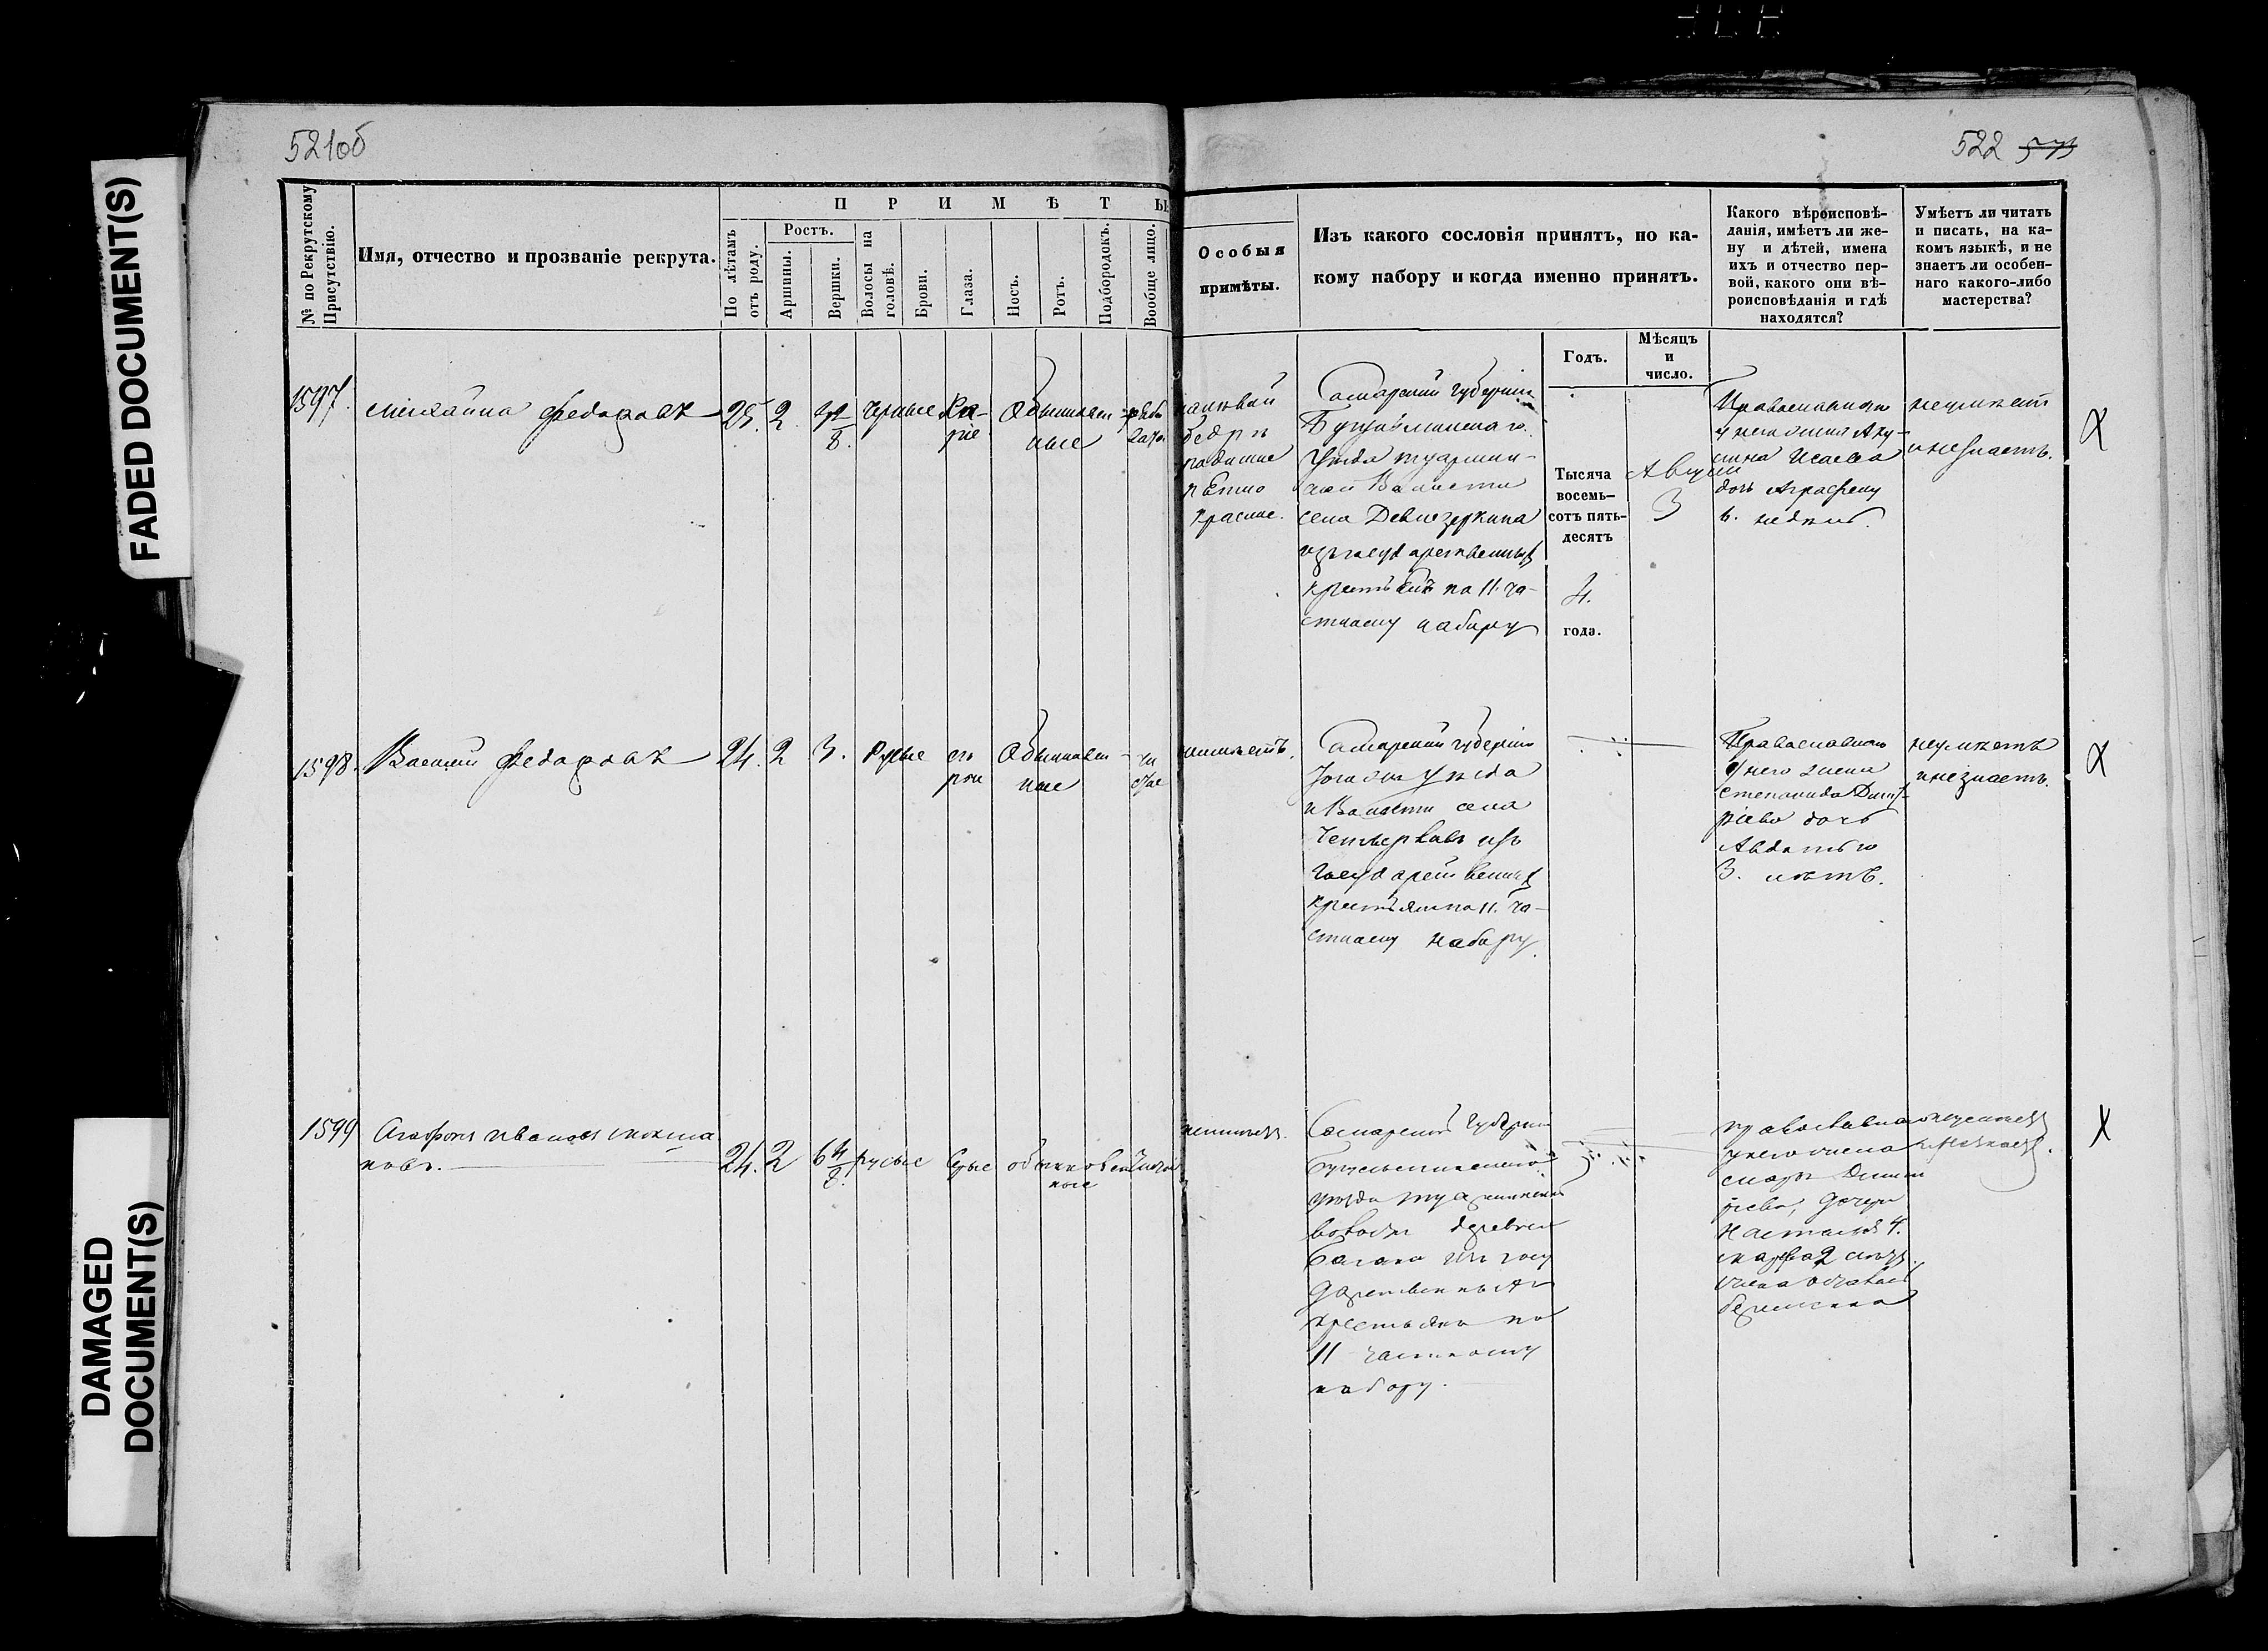 FADED DOCUMENT(S)
DAMAGED
DOCUMENT(S)
521об
522 573
№ по Рекрутскому
Присутствію.
Имя, отчество и прозваніе рекрута.
П Р И М Ѣ Т Ы.
По лѣтамъ
отъ роду.
Ростъ.
Аршины.
Вершки.
Волосы на
головѣ.
Брови.
Глаза.
Носъ.
Ротъ.
Подбородокъ.
Вообще лицо.
Особыя
примѣты.
Изъ какого сословія принятъ, по ка-
кому набору и когда именно принятъ.
Какого вѣроисповѣ-
данія, имѣетъ ли же-
ну и дѣтей, имена
ихъ и отчество пер-
вой, какого они вѣ-
роисповѣданія и гдѣ
находятся?
Умѣетъ ли читать
и писать, на ка-
комъ языкѣ, и не
знаетъ ли особен-
наго какого-либо
мастерства?
Годъ.
Мѣсяцъ
и
число.
1597.
Михайла Федоровъ
25.
2
8.
черные
Ка-
ріе
Обыкновен-
ные
на лѣвой
бедрѣ
родимое
пѣтно
красное.
Самарской губерніи
Бугульминскаго
уѣзда туармин-
ской Волости
села Девлезеркина
изъ государственныхъ
крестьянъ по 11. ча-
стному набору
Тысяча
восемь-
сотъ пять-
десятъ
4.
года.
Август
3
Православнаго
у него жена Аку-
лина Исаева
дочь Аграфену
6. недѣль.
неумѣетъ
и незнаетъ.
1598.
Василий Федоровъ
24.
2
3.
Русые
се
рые
Обыкновен-
ные
чи
стое
неимѣетъ.
Самарской губерніи
уѣзда
и Волости села
изъ
Государственныхъ
крестьян по 11. ча-
стному набору.
Православнаго
у него жена
Степанида Дмит-
ріева дочь
Авдотью
3. лѣтъ.
неумѣетъ
и незнаетъ.
1599
Агафонъ Ивановъ
новъ.
24.
2
6 4/8
русые
Серые
обыкновен
ные
чистое
неимѣетъ.
Самарской Губерніи
Бугульминскаго
уѣзда туарминской
волости деревни
из госу
дарственныхъ
крестьянъ по
11 частному
набору.
православнаго
у него жена
Дмит
ріева, дочери
Настасья 4.
Марфа 2 лѣтъ.
жена осталась
беременна
неумѣетъ
и незнаетъ.